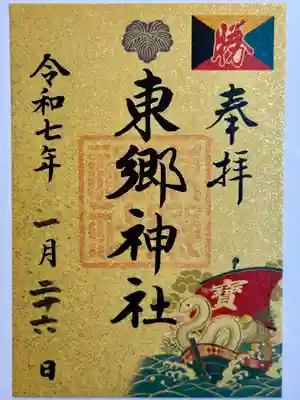 勝
奉拝
東郷神社
令和七年 一月二十六日
寶